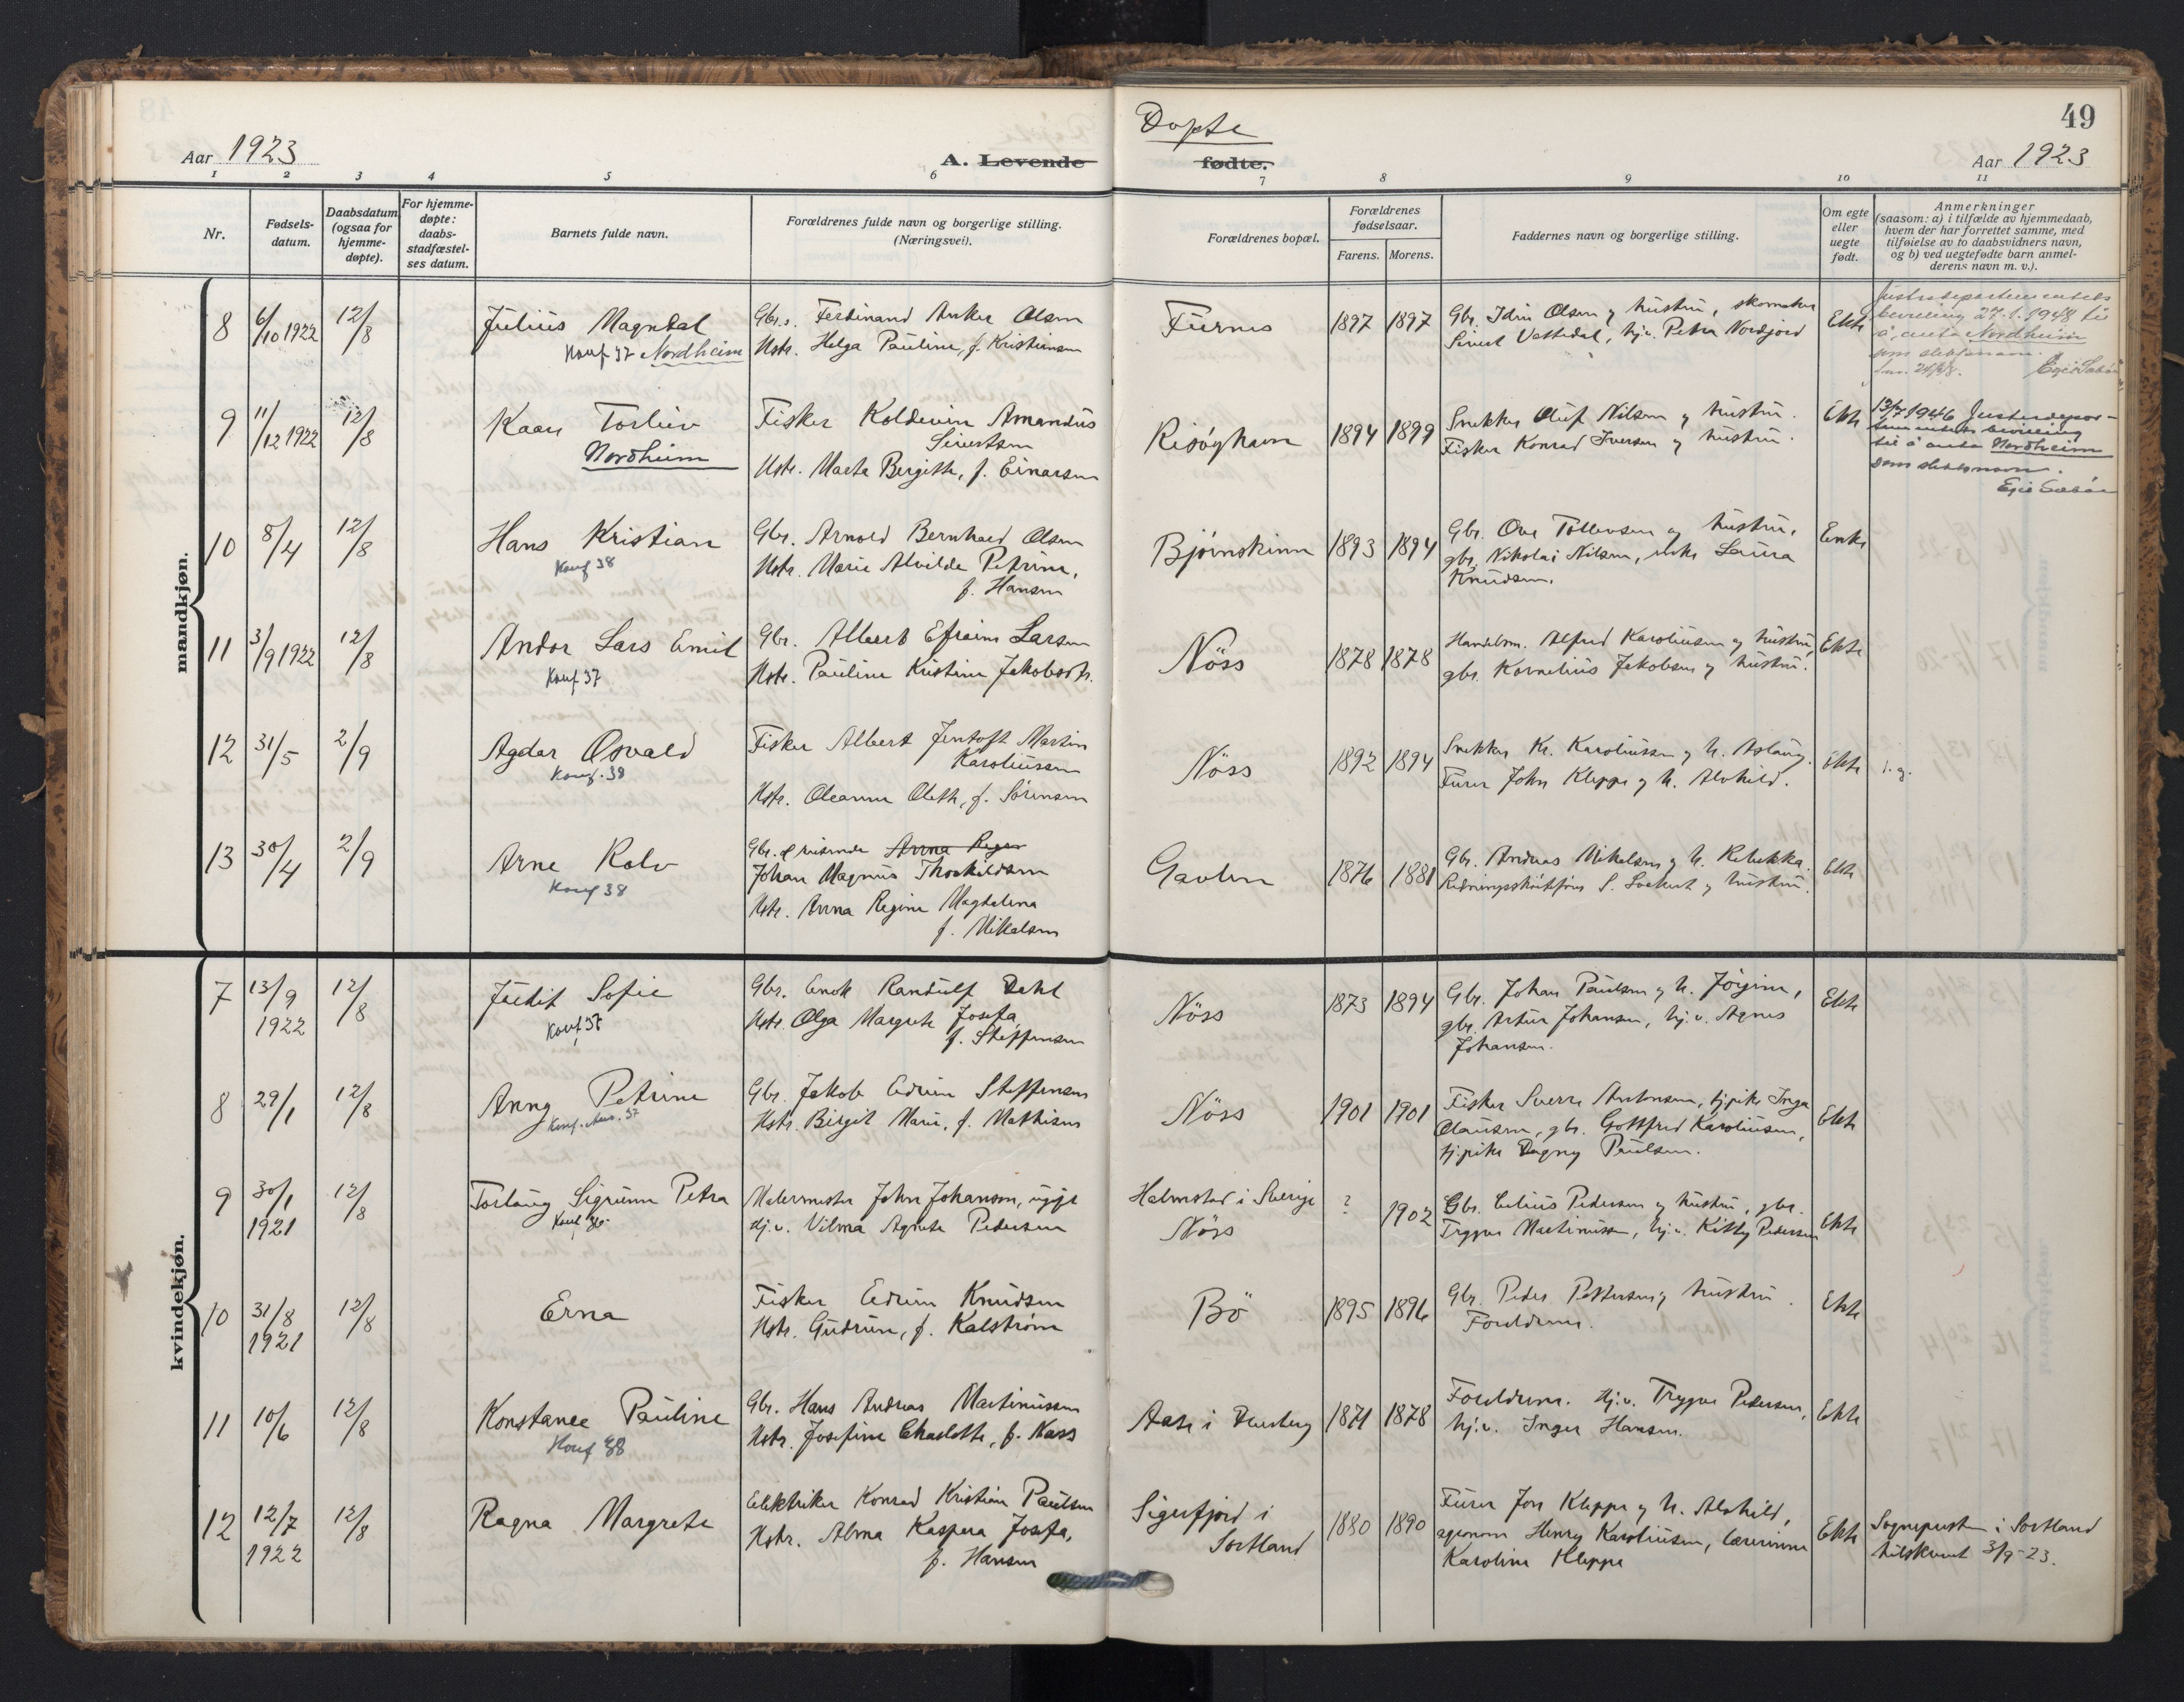 48
49
Døpte
Aar 1923
A. Levende
fødte.
Aar 1923
1 2 3 4 5 6 7 8 9 10 11
Nr.
Fødsels-
datum.
Daabsdatum
(ogsaa for
hjemme-
døpte).
For hjemme-
døpte:
daabs-
stadfæstel-
ses datum.
Barnets fulde navn.
Forældrenes fulde navn og borgerlige stilling.
(Næringsvei).
Forældrenes bopæl.
Forældrenes
fødselsaar.
Farens. Morens.
Faddernes navn og borgerlige stilling.
Om egte
eller
uegte
født.
Anmerkninger
(saasom: a) i tilfælde av hjemmedaab,
hvem der har forrettet samme, med
tilføielse av to daabsvidners navn,
og b) ved uegtefødte barn anmel-
derens navn m. v.).
mandkjøn.
8
6/10 1922
12/8
Julius Magndal
Konf 37 Nordheim
Gbr. Ferdinand Anker Olsen
Hstr. Helga Pauline, f. Kristiansen
Furnes
1897 1897
Gbr. Olsen og hustru, skomaker
Sivert Vestedal, hj.v. Petra Nordfjord
Ekte
Justisdepartementets
bevilling 27.1.1948 til
å anta Nordheim
som slektsnavn.
9
11/12 1922
12/8
Kaare Torleiv
Nordheim
Fisker Koldevin Amandus
Sivertsen
Hstr. Marta Bergitte, f. Einarsen
Risøyhavn
1894 1899
Snekker Oluf Nilsen og hustru.
Fisker Konrad Iversen og hustru.
Ekte
13/7 1946 Justisdepar-
tementets bevilling
til å anta Nordheim
som slektsnavn.
10
8/4
12/8
Hans Kristian
Konf 38
Gbr. Arnold Bernhard Olsen
Hstr. Marie Alvilde Petrine,
f. Hansen
Bjørnskinn
1893 1894
Gbr. Ove Tollevsen og hustru,
gbr. Nikolai Nilsen, enke Laura
Knudsen.
11
3/9 1922
12/8
Andor Lars Emil
Konf 37
Gbr. Albert Efraim Larsen
Hstr. Pauline Kristine Jakobsdtr.
Nöss
1878 1878
Handelsm. Alfred Karoliussen og hustru,
gbr. Kornelius Jakobsen og hustru.
Ekte
12
31/5
2/9
Agdar Osvald
Konf. 38
Fisker Albert Jentoft Martin
Karoliussen
Hstr. Oleanna Oleth, f. Sørensen
Nöss
1892 1894
Snekker Kr. Karoliussen og h. Aslaug.
Furer John Kleppe og h. Alvhild.
Ekte
13
30/4
2/9
Arne Rolv
Konf 38
Gbr. Anna Regin
Johan Magnus Thorkildsen
Hstr. Anna Regine Magdalena
f. Mikalsen
Gavlen
1876 1881
Gbr. Andreas Mikalsen og h. Rebekka.
Redningsskøitefører S. og hustru.
Ekte
kvindekjøn.
7
13/9
1922
12/8
Judit Sofie
Konf 37
Gbr. Enok Randulf Dahl
Hstr. Olga Margrete Josefa
f. Steffensen
Nöss
1873 1894
Gbr. Johan Paulsen og h. Jørgine,
gbr. Artur Johansen, hj.v. Agnes
Johansen.
Ekte
8
29/1
12/8
Anny Petrine
Konf. 37
Gbr. Jakob Edvin Steffensen
Hstr. Birgit Marie, f. Mathisen
Nöss
1901 1901
Fisker Sverre Antonsen, tj.pike Inga
Olaussen, gbr. Gottfred Karoliussen,
tj.pike Dagny Paulsen.
Ekte
9
30/1
1921
12/8
Torlaug Sigrunn Petra
Konf 36
Malermester John Johanson, ugift
Hj.v. Vilma Agnete Pedersen
Halmstad i Sverige
Nöss
? 1902
Gbr. Edius Pedersen og hustru, gbr.
Trygve Martinussen, hj.v. Kitty Pedersen
Ekte
10
31/8
1921
12/8
Erna
Fisker Edvin Knudsen
Hstr. Gudrun, f. Kalstrøm
Bö
1895 1896
Gbr. Peder Pettersen og hustru.
Foreldrene.
Ekte
11
10/6
12/8
Konstance Pauline
Konf 38
Gbr. Hans Andreas Martinussen
Hstr. Josefine Charlotte, f. Kass
Aase i Dverberg
1871 1878
Foreldrene. Hj.v. Trygve Pedersen,
hj.v. Inger Hansen.
Ekte
12
12/7
1922
12/8
Ragna Margrete
Elektriker Konrad Kristian Paulsen
Hstr. Alma Kaspara Josefa,
f. Hansen
Sigerfjord i
Sortland
1880 1890
Furer Jon Kleppe og h. Alvhild,
agronom Henry Karoliussen, lærerinne
Karoline Kleppe
Ekte
Sognepresten i Sortland
tilskrevet 3/9-23.